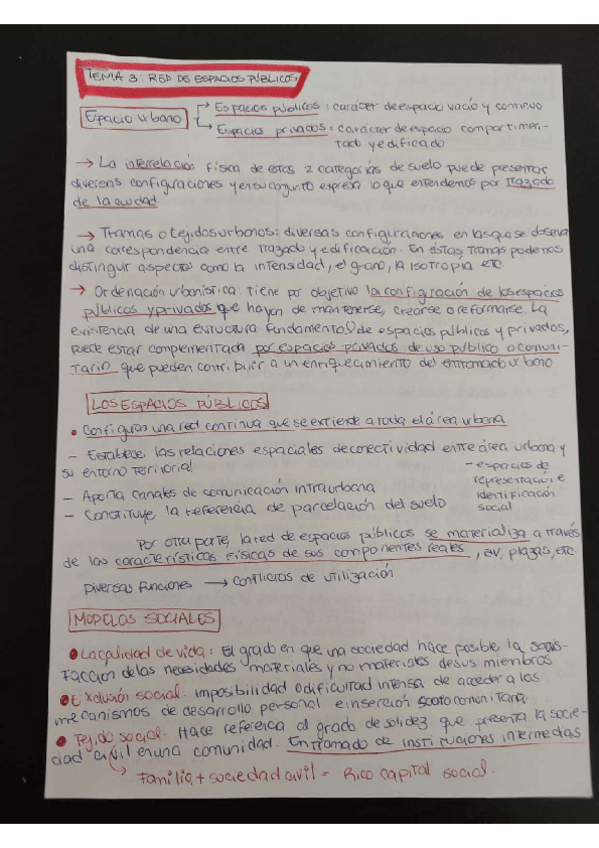 TEMA 3: RED DE ESPACIOS PÚBLICOS.
Espacio urbano
→ Espacios públicos: carácter de espacio vacío y continuo
→ Espacios privados: carácter de espacio compartimen-
tado y edificado
→ La interrelación física de estas 2 categorías de suelo puede presentar
diversas configuraciones y en su conjunto expresa lo que entendemos por trazado
de la ciudad
→ Tramas o tejidos urbanos: diversas configuraciones en las que se observa
una correspondencia entre trazado y edificación. En estas, tramas podemos
distinguir aspectos como la intensidad, el grano, la isotropia etc
→ Ordenación urbanística: tiene por objetivo la configuración de los espacios
públicos y privados que hayan de mantenerse, crearse o reformarse. La
existencia de una estructura fundamental de espacios públicos y privados,
puede estar complementada por espacios privados de uso público o comuni-
tario que pueden contribuir a un enriquecimiento del entramado urbano
LOS ESPACIOS PÚBLICOS
• Configuran una red continua que se extiende a toda el área urbana
- Establece las relaciones espaciales de conectividad entre área urbana y
su entorno territorial
- Aporta canales de comunicación intraurbana
- Constituye la referencia de parcelación del suelo
- espacios de
representación e
identificación
social
Por otra parte, la red de espacios públicos se materializa a través
de las características físicas de sus componentes reales, av, plazas, etc
Diversas funciones → conflictos de utilización
MODELOS SOCIALES
• La calidad de vida: El grado en que una sociedad hace posible la satis-
facción de las necesidades materiales y no materiales de sus miembros
• Exclusión social: imposibilidad o dificultad intensa de acceder a los
mecanismos de desarrollo personal e inserción sociocomunitaria.
• Tejido social: Hace referencia al grado de solidez que presenta la socie-
dad civil en una comunidad. Entramado de instituciones intermedias
→ Familia + sociedad civil = Rico capital social.